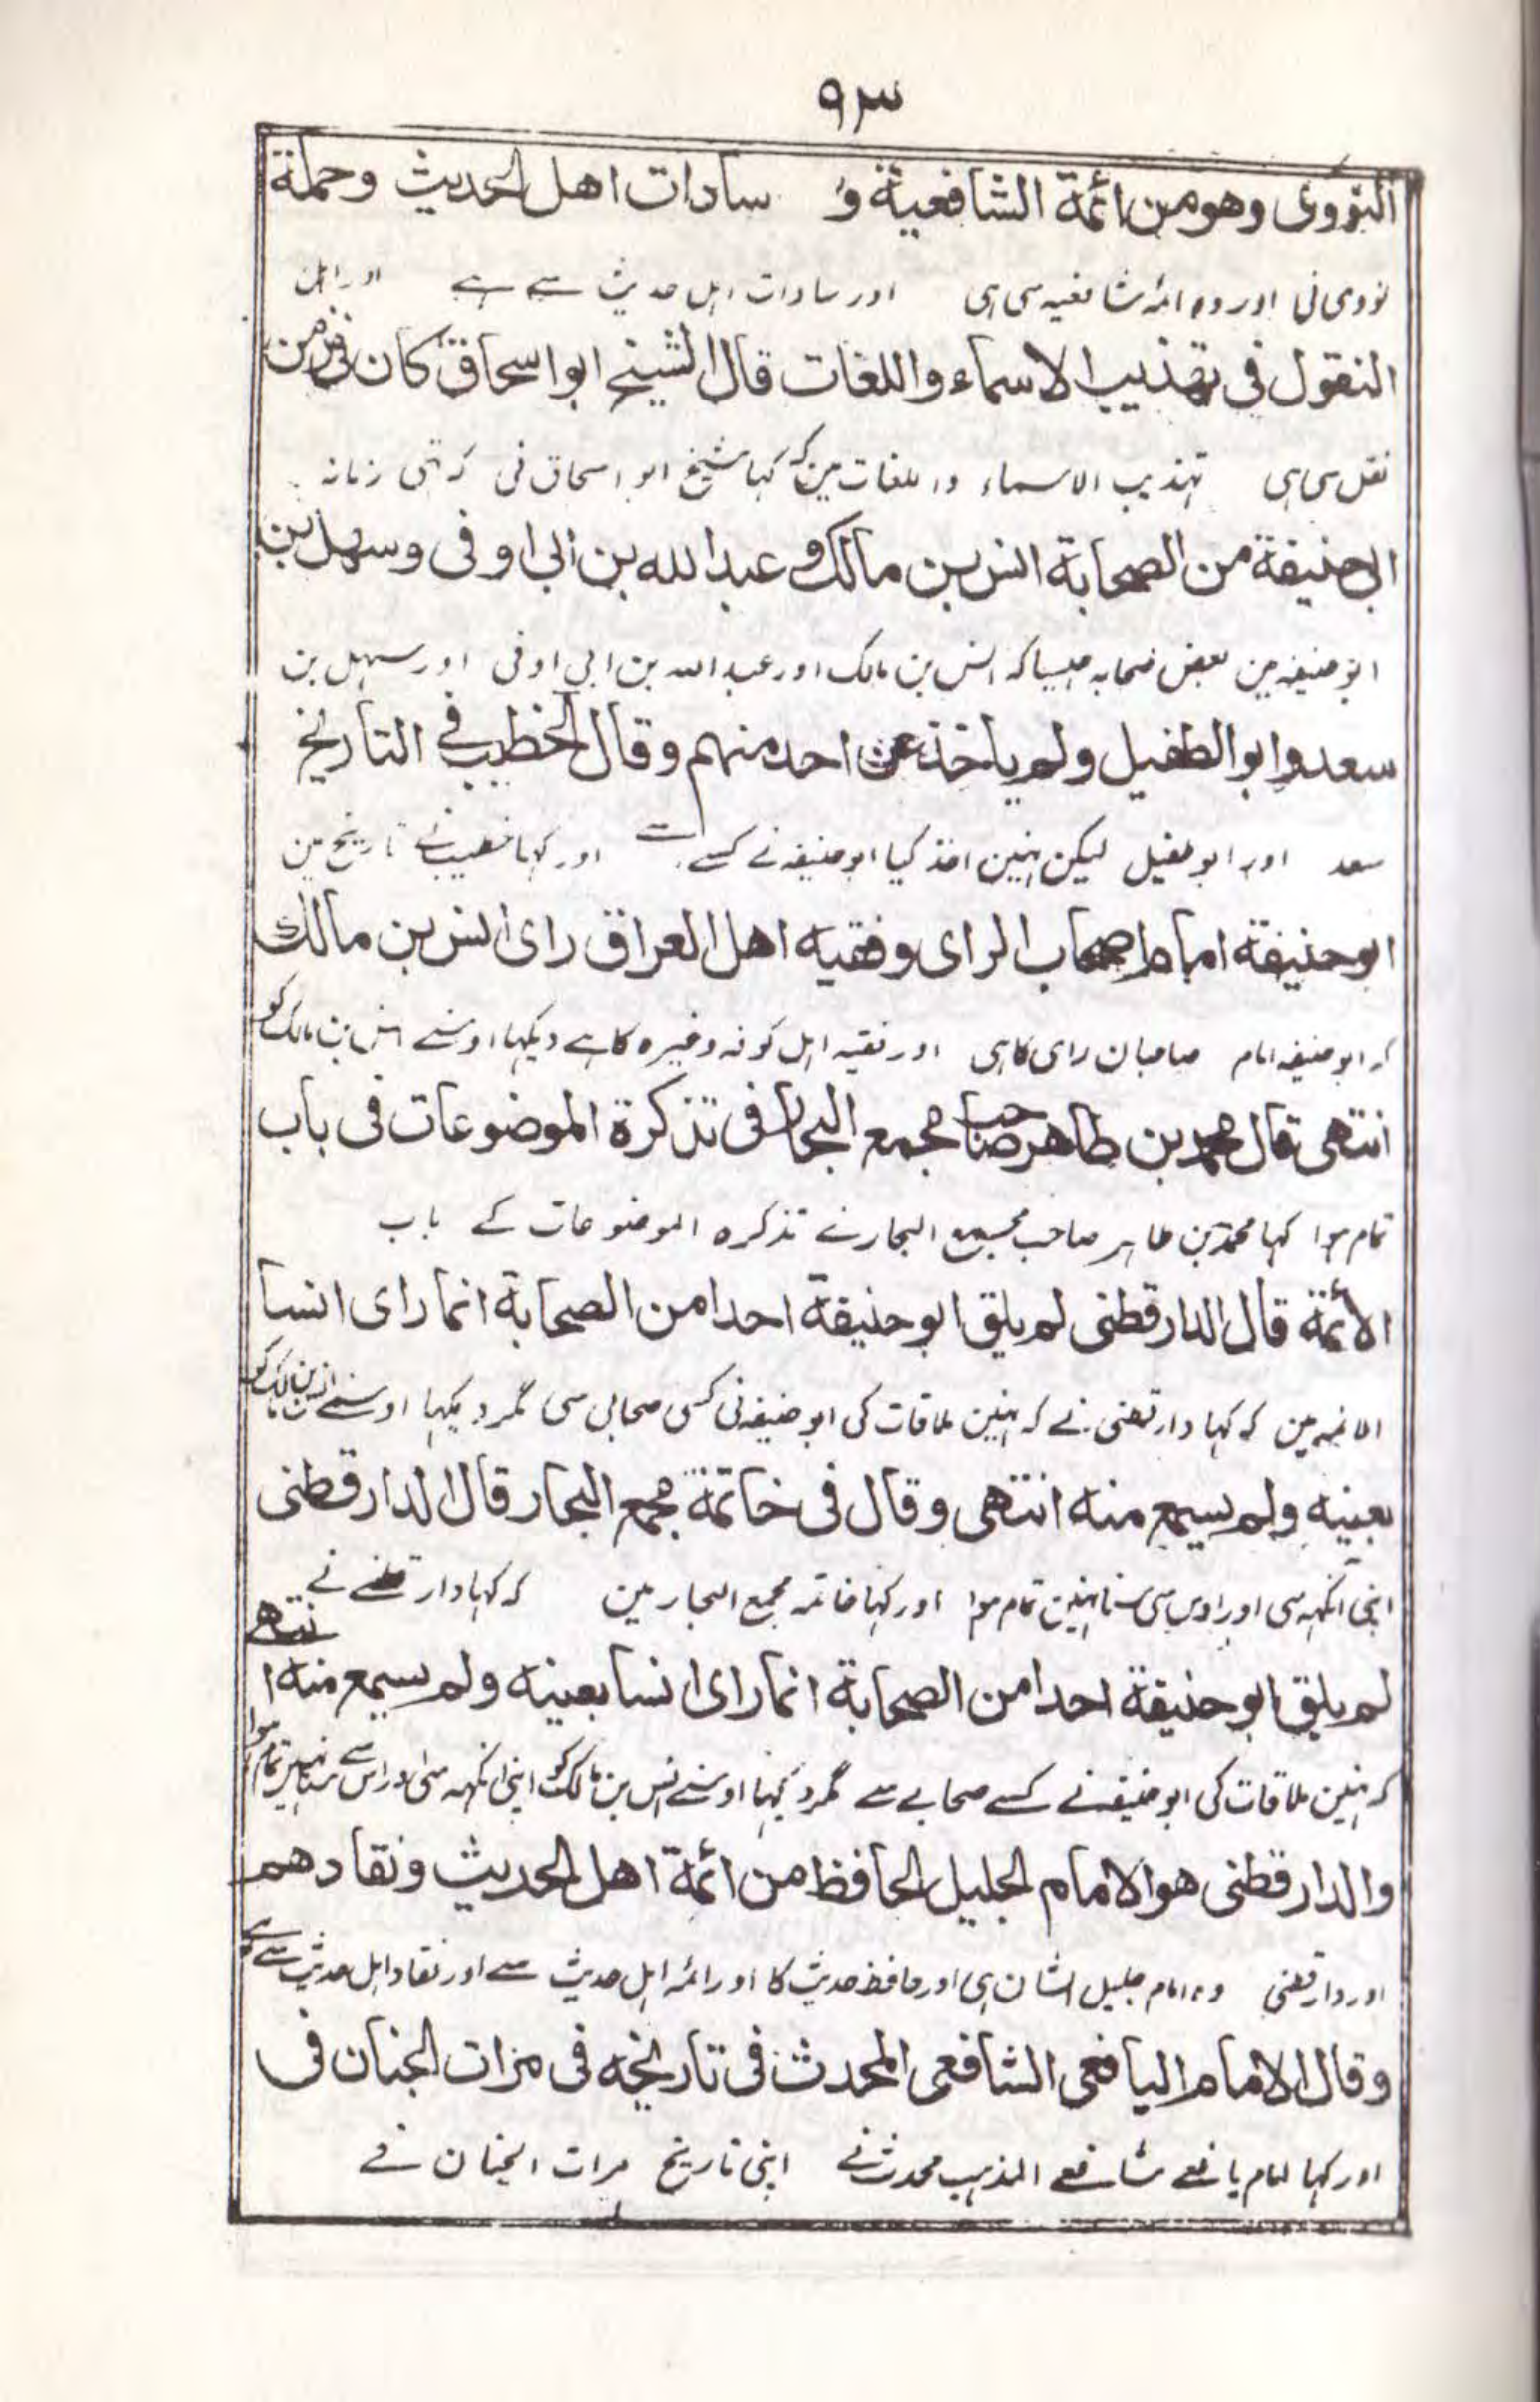 ٩٣
النووی وهو من ائمة الشافعیة و سادات اهل الحدیث وحملة
نووی نی اور وہ ائمہ شافعیہ سی ہی اور سادات اہل حدیث سے ہے اور اہل
النقول فی تهذیب الاسماء واللغات قال الشیخ ابواسحاق کان فی زمن
نقل سی ہی تہذیب الاسماء واللغات مین کہ کہا شیخ ابو اسحاق نی کہ تہی زمانہ
ابی حنیفة من الصحابة انس بن مالک و عبد الله بن ابی اوفی وسهل بن
ابو حنیفہ مین بعض صحابہ جیسا کہ انس بن مالک اور عبد اللہ بن ابی اوفی اور سہل بن
سعد وابوالطفیل ولم یاخذ عن احد منهم وقال الخطیب فی التاریخ
سعد اور ابو طفیل لیکن نہین اخذ کیا ابو حنیفہ نے کسے سے اور کہا خطیب نے تاریخ مین
ابو حنیفة امام اصحاب الرای وفقیه اهل العراق رای انس بن مالک
کہ ابو حنیفہ امام صاحبان رای کا ہی اور فقیہ اہل کوفہ وغیرہ کا ہے دیکہا اوسنے انس بن مالک کو
انتهی قال محمد بن طاهر صاحب مجمع البحار فی تذکرة الموضوعات فی باب
تمام ہوا کہا محمد بن طاہر صاحب مجمع البحار نے تذکرہ الموضوعات کے باب
الأئمة قال الدارقطنی لم یلق ابو حنیفة احدا من الصحابة انما رای انسا
الائمہ مین کہ کہا دارقطنی نے کہ نہین ملاقات کی ابو حنیفہ نی کسی صحابی سی مگر دیکہا اوسنے انس بن مالک کو
بعینه ولم یسمع منه انتهی وقال فی خاتمة مجمع البحار قال الدارقطنی
اپنی آنکہہ سی اور اوس سی سنا نہین تمام ہوا اور کہا خاتمہ مجمع البحار مین کہ کہا دارقطنے نے
لم یلق ابو حنیفة احدا من الصحابة انما رای انسا بعینه ولم یسمع منه انتهے
کہ نہین ملاقات کی ابو حنیفہ نے کسے صحابے سے مگر دیکہا اوسنے انس بن مالک کو اپنی آنکہہ سی اور اس سے سنا نہین تمام ہوا
والدارقطنی هو الامام الجلیل الحافظ من ائمة اهل الحدیث ونقادهم
اور دارقطنی وہ امام جلیل الشان ہی اور حافظ حدیث کا اور ائمہ اہل حدیث سے اور نقاد اہل حدیث سے ہے
وقال الامام الیافعی الشافعی المحدث فی تاریخه فی مرات الجنان فی
اور کہا امام یافعے شافعے المذہب محدث نے اپنی تاریخ مرات الجنان نے